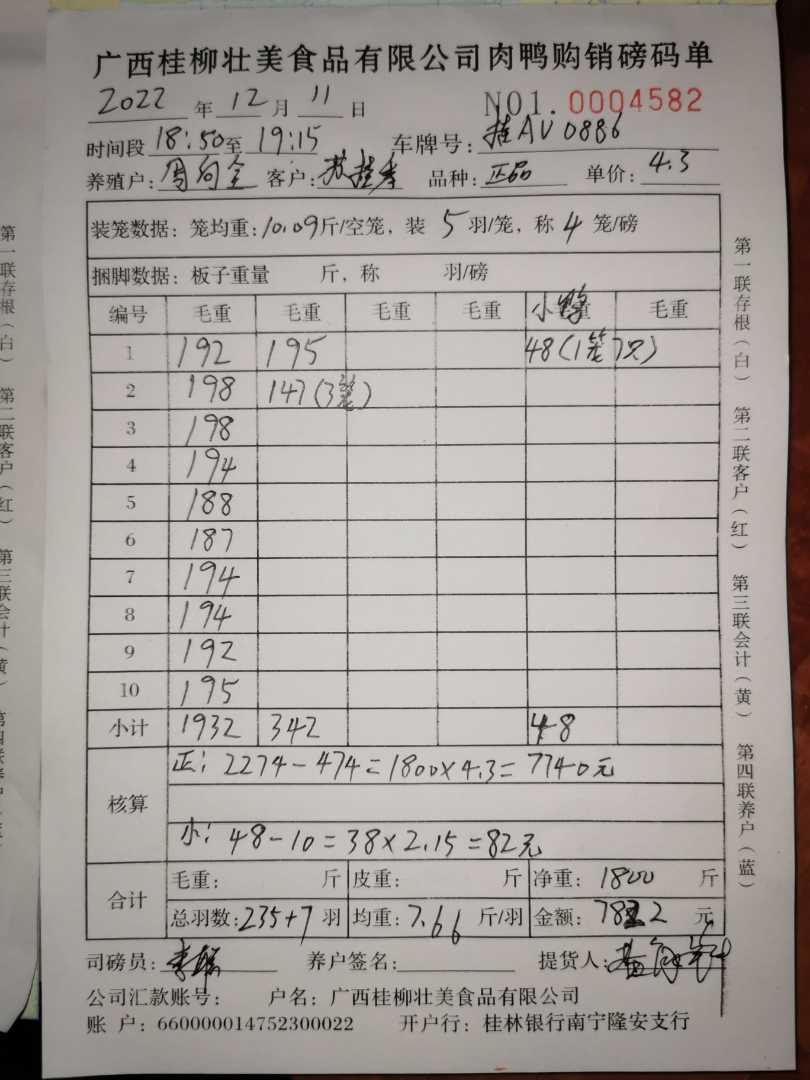 广西桂柳壮美食品有限公司肉鸭购销磅码单
2022 年 12 月 11 日 NO1. 0004582
时间段 18:50 至 19:15 车牌号: 桂AV0886
养殖户: 周向全 客户: 苏桂 品种: 正品 单价: 4.3
装笼数据: 笼均重: 10.09 斤/空笼, 装 5 羽/笼, 称 4 笼/磅
捆脚数据: 板子重量 斤, 称 羽/磅
编号 毛重 毛重 毛重 毛重 小鸭 毛重
1 192 195 48(1笼7只)
2 198 147(3笼)
3 198
4 194
5 188
6 187
7 194
8 194
9 192
10 195
小计 1932 342 48
核算
正: 2274-474=1800×4.3=7740元
小: 48-10=38×2.15=82元
合计
毛重: 斤 皮重: 斤 净重: 1800 斤
总羽数: 235+7 羽 均重: 7.66 斤/羽 金额: 7822 元
司磅员: 养户签名: 提货人:
公司汇款账号: 户名: 广西桂柳壮美食品有限公司
账 户: 660000014752300022 开户行: 桂林银行南宁隆安支行
第一联存根(白) 第二联客户(红) 第三联会计(黄) 第四联养户(蓝)
第一联存根(白) 第二联客户(红) 第三联会计(黄)